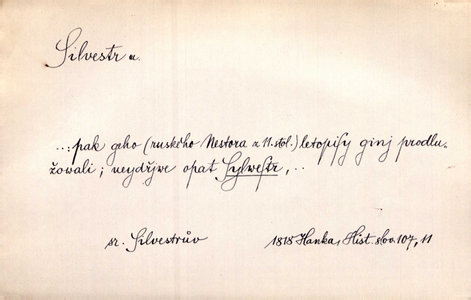 Silvestr a.
..: pak geho (ruského Nestora z 11. stol.) letopisy ginj prodlu-
žowali; neydřjwe opat Sylwestr, ..
sr. Silvestrův
1818 Hanka, Hist. slov. 107, 11